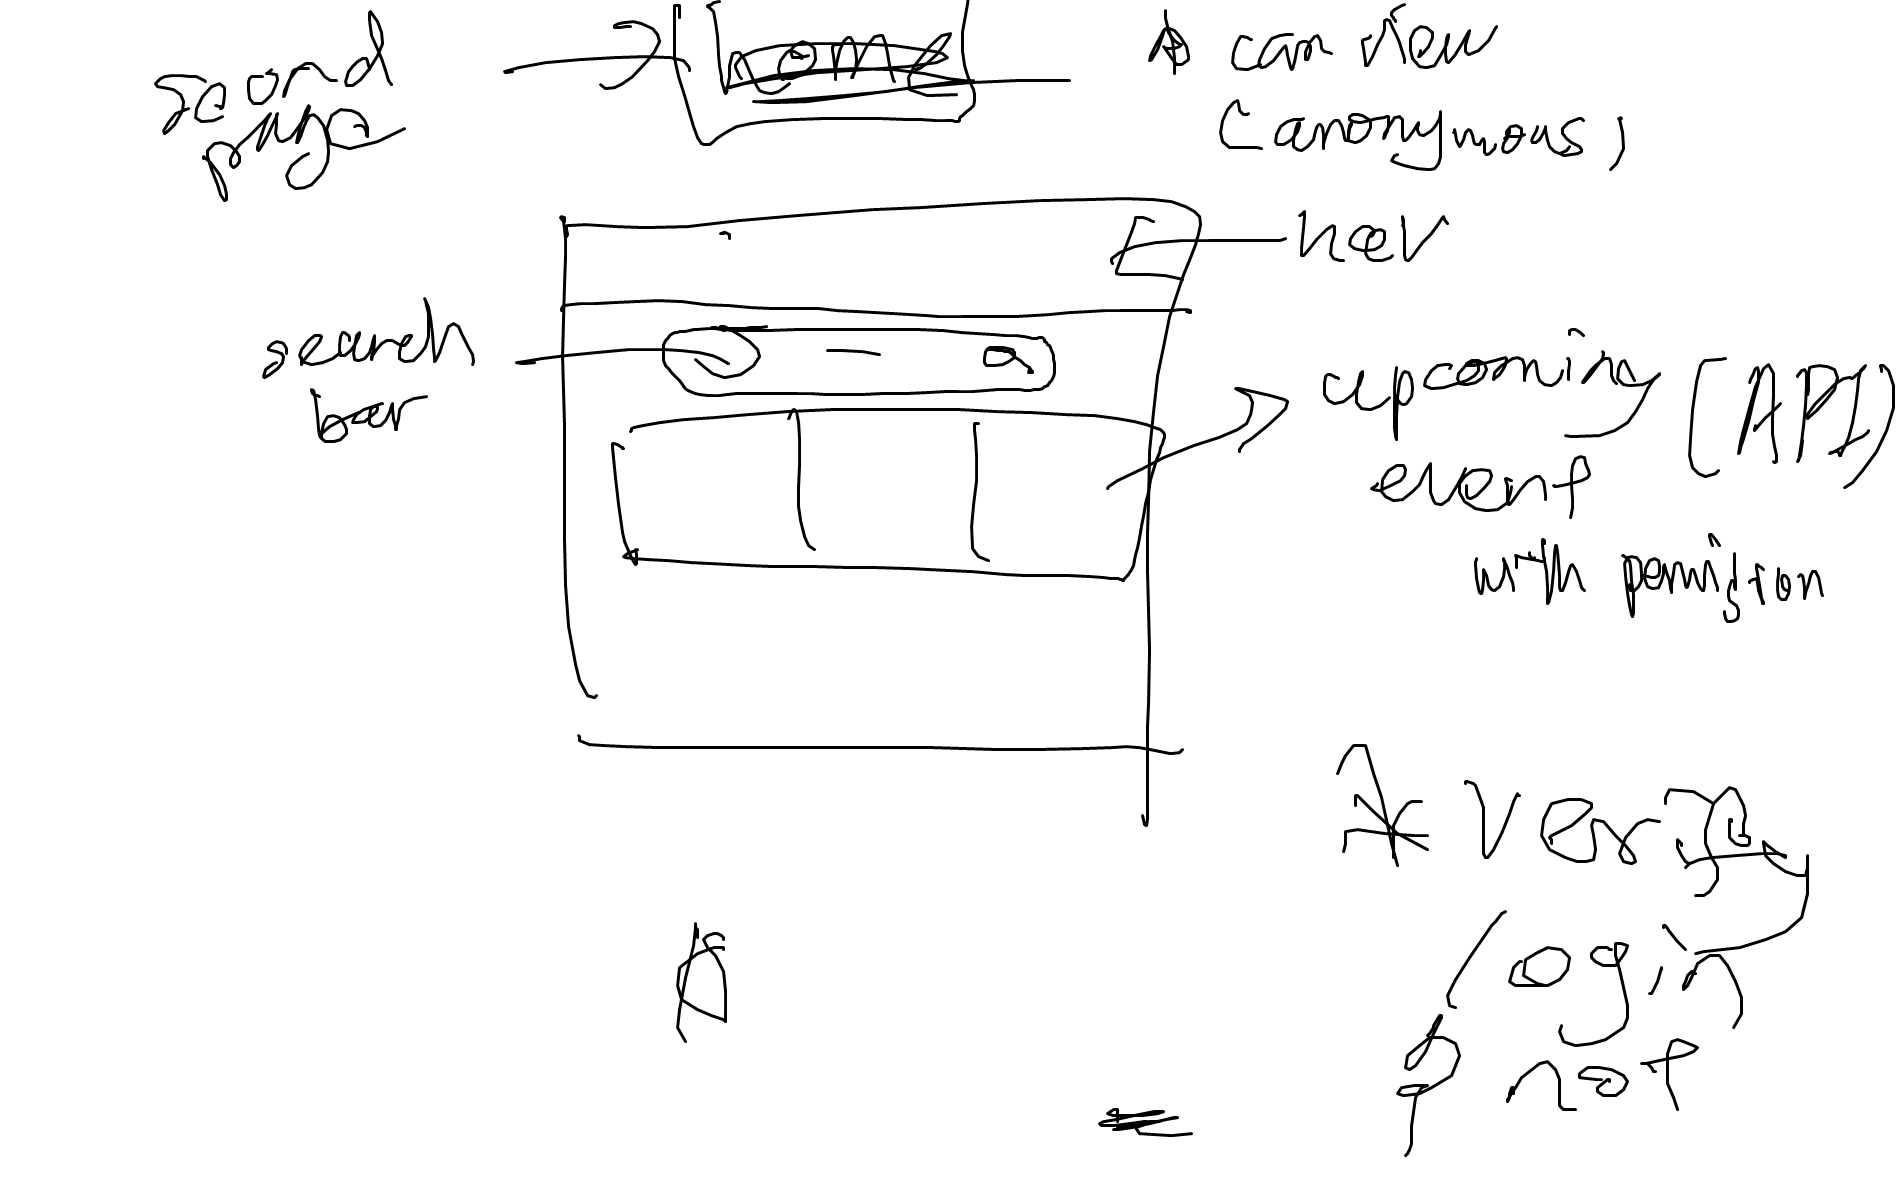 second
page
home
can view
(anonymous)
nav
search
bar
upcoming (API)
event
with permistion
* Verify
login
not